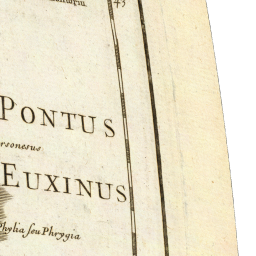 43
PONTUS
rsonesus
EUXINUS
Phylia ſeu Phrygia